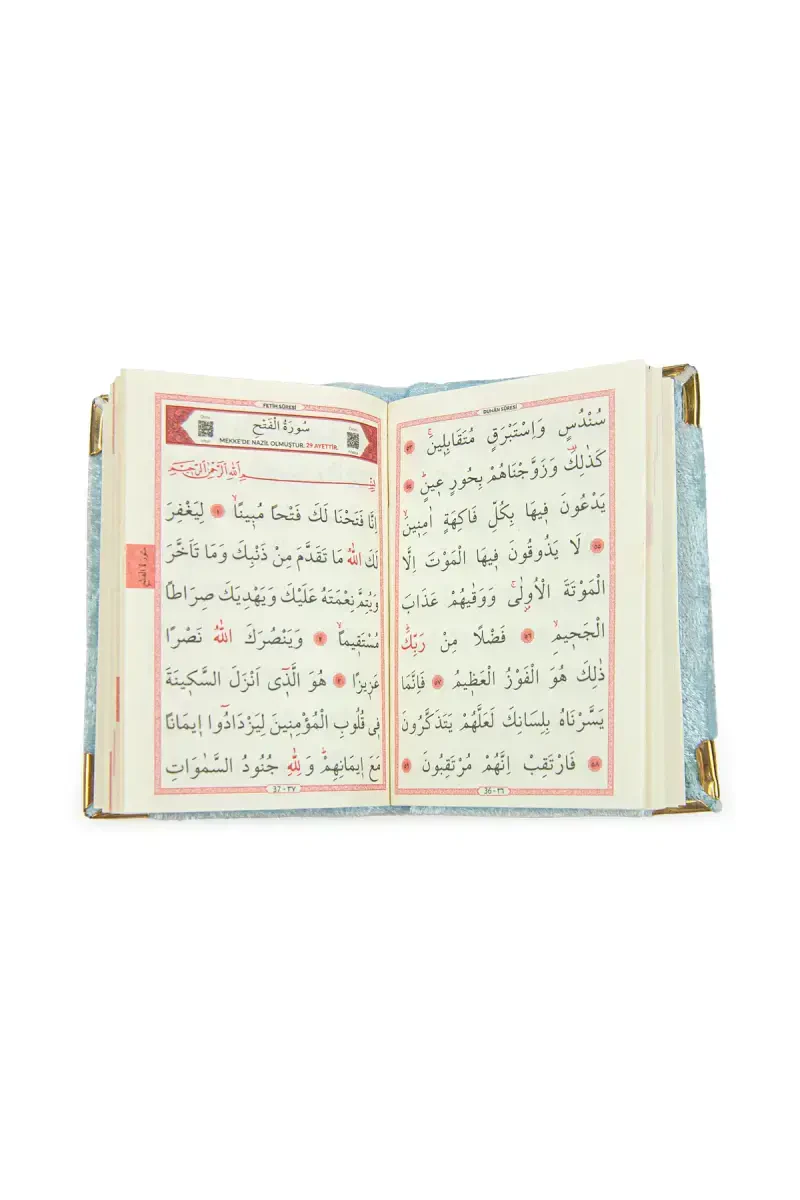 DUHÂN SÛRESİ
سُنْدُسٍ وَاِسْتَبْرَقٍ مُتَقَابِلٖينَۚ ٥٣
كَذٰلِكَ۠ وَزَوَّجْنَاهُمْ بِحُورٍ عٖينٍۜ ٥٤
يَدْعُونَ فٖيهَا بِكُلِّ فَاكِهَةٍ اٰمِنٖينَۙ
٥٥ لَا يَذُوقُونَ فٖيهَا الْمَوْتَ اِلَّا
الْمَوْتَةَ الْاُولٰىۚ وَوَقٰيهُمْ عَذَابَ
الْجَحٖيمِۙ ٥٦ فَضْلًا مِنْ رَبِّكَۜ
ذٰلِكَ هُوَ الْفَوْزُ الْعَظٖيمُ ٥٧ فَاِنَّمَا
يَسَّرْنَاهُ بِلِسَانِكَ لَعَلَّهُمْ يَتَذَكَّرُونَ
٥٨ فَارْتَقِبْ اِنَّهُمْ مُرْتَقِبُونَ ٥٩
36 - ٣٦
FETİH SÛRESİ
سُورَةُ الْفَتْحِ
MEKKE'DE NAZİL OLMUŞTUR. 29 AYETTİR.
بِسْمِ اللّٰهِ الرَّحْمٰنِ الرَّحٖيمِ
اِنَّا فَتَحْنَا لَكَ فَتْحًا مُبٖينًاۙ ١ لِيَغْفِرَ
لَكَ اللّٰهُ مَا تَقَدَّمَ مِنْ ذَنْبِكَ وَمَا تَاَخَّرَ
وَيُتِمَّ نِعْمَتَهُ عَلَيْكَ وَيَهْدِيَكَ صِرَاطًا
مُسْتَقٖيمًاۙ ٢ وَيَنْصُرَكَ اللّٰهُ نَصْرًا
عَزٖيزًا ٣ هُوَ الَّذٖٓي اَنْزَلَ السَّكٖينَةَ
فٖي قُلُوبِ الْمُؤْمِنٖينَ لِيَزْدَادُٓوا اٖيمَانًا
مَعَ اٖيمَانِهِمْۜ وَلِلّٰهِ جُنُودُ السَّمٰوَاتِ
37 - ٣٧
سورة الفتح